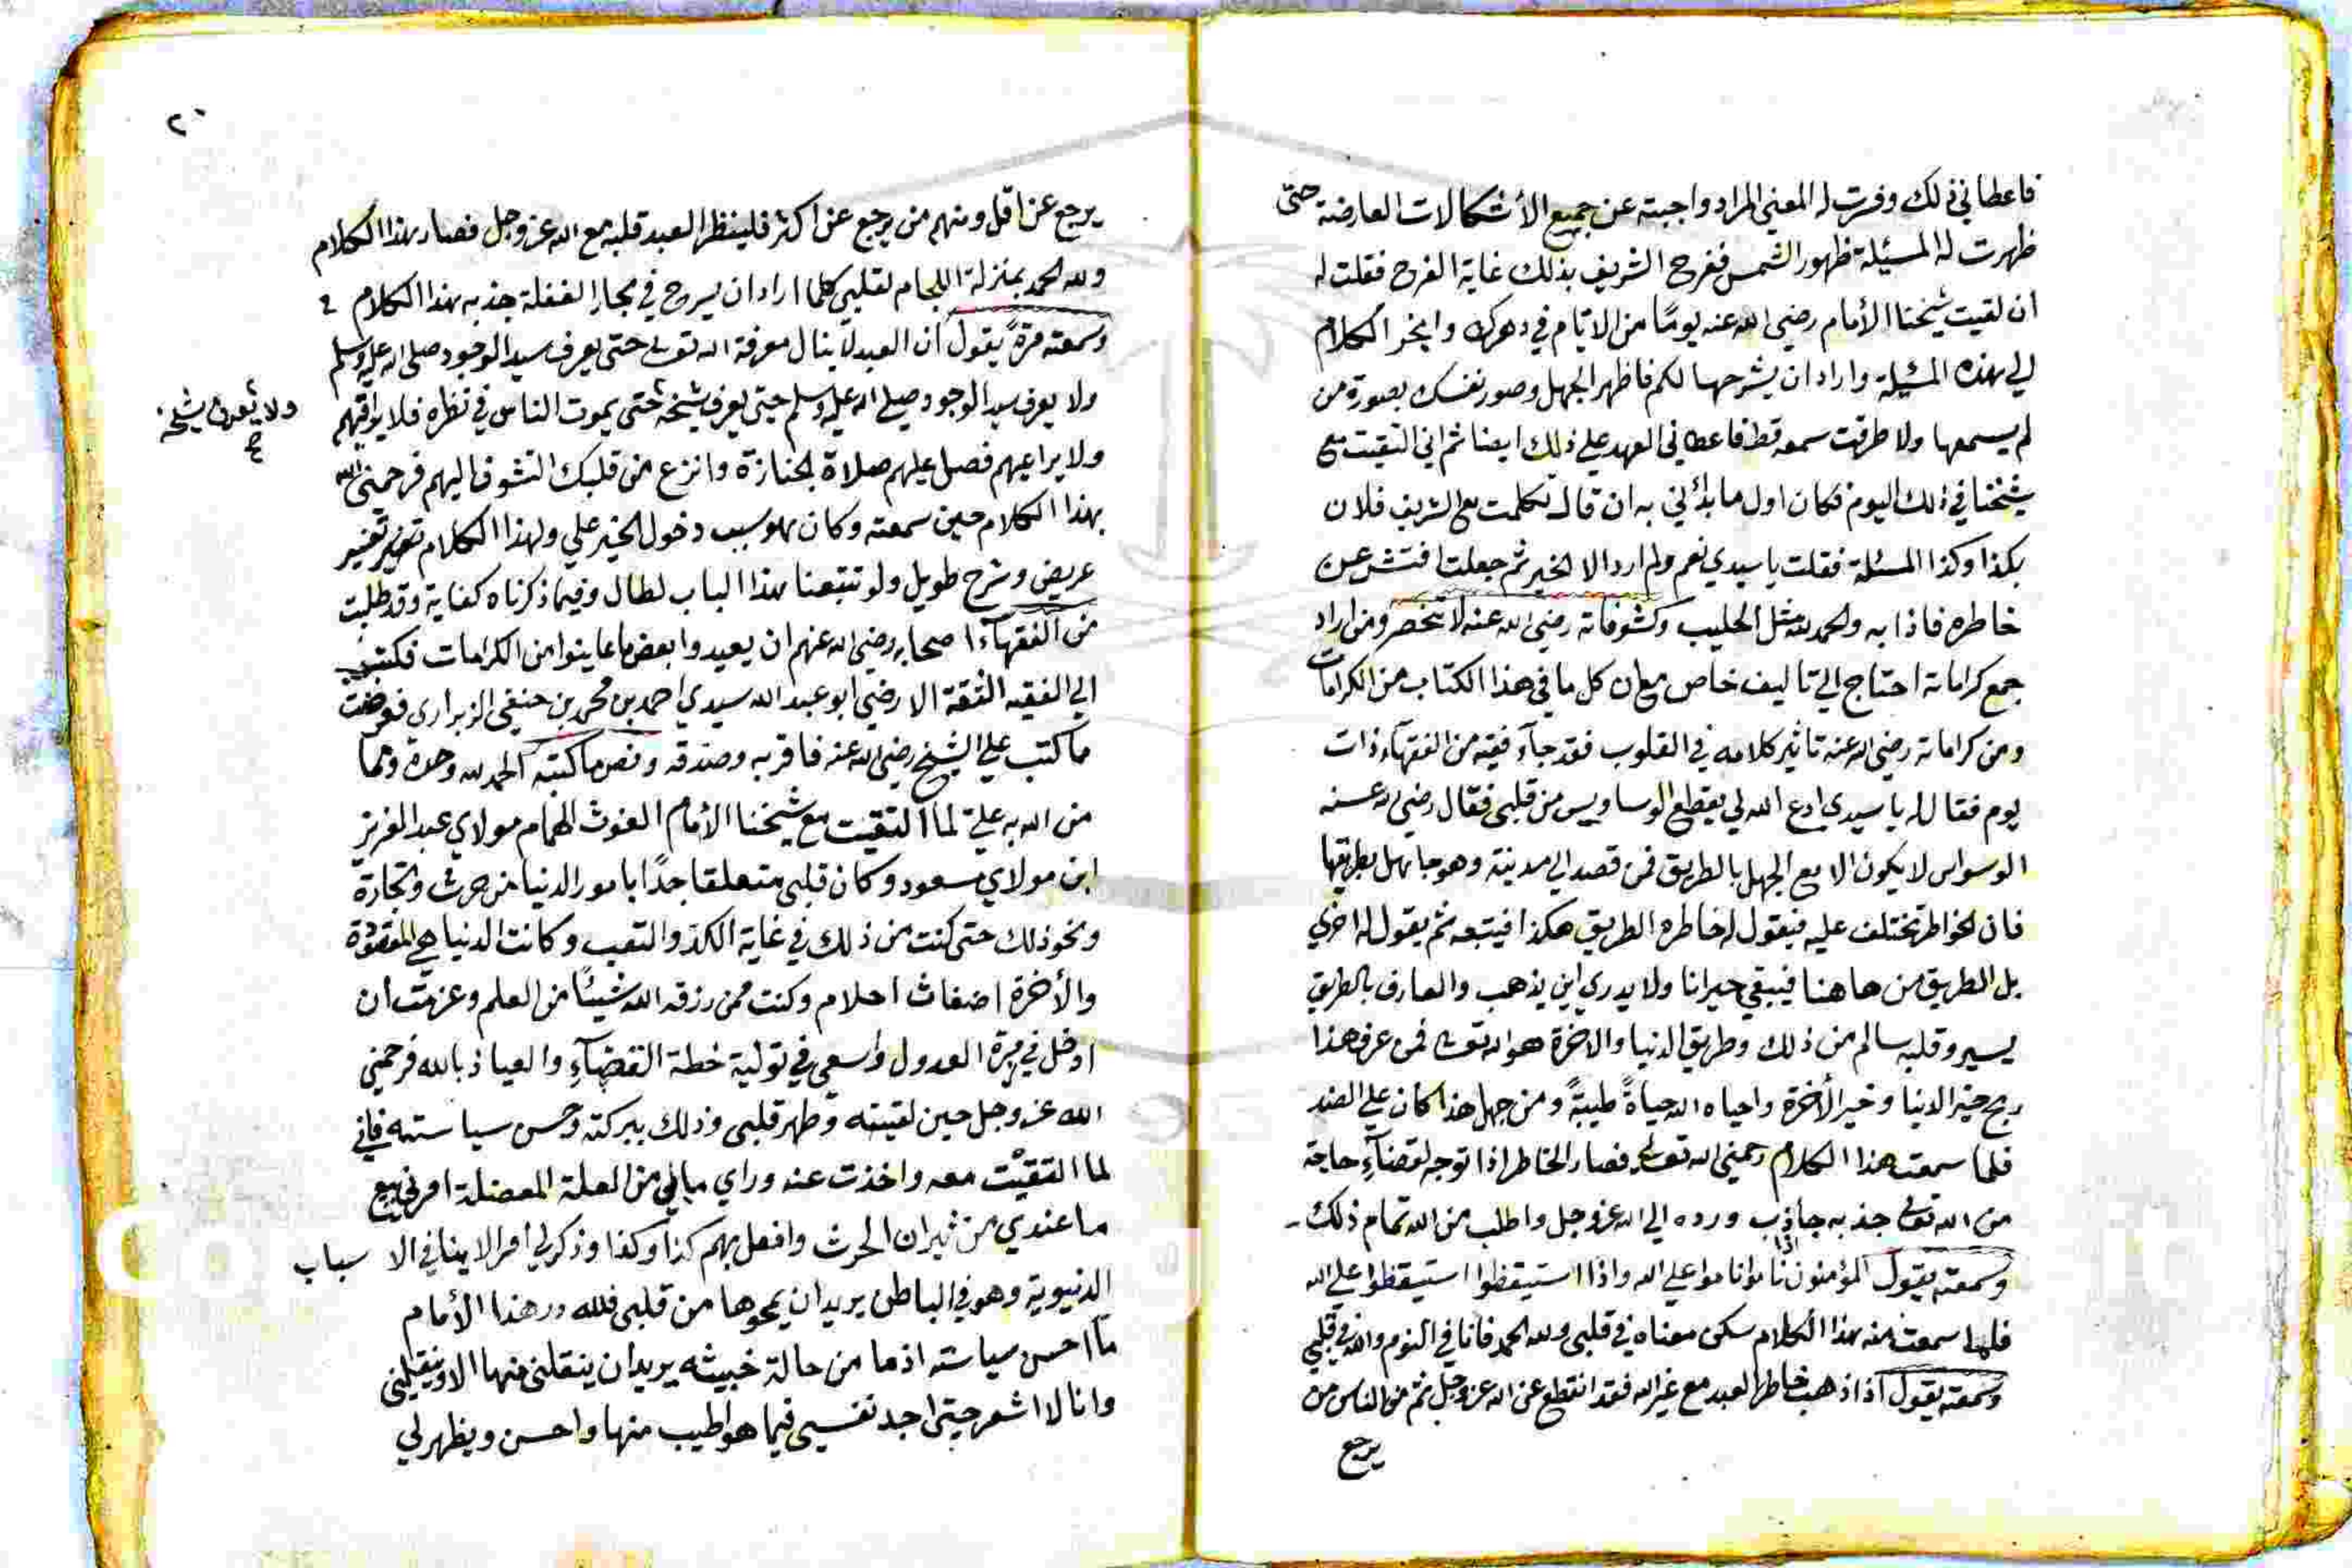 فاعطاني ذلك وفسرت له المعني المراد واجبته عن جميع الأشكالات العارضة حتى
ظهرت له المسئلة ظهور الشمس ففرح الشريف بذلك غاية الفرح فقلت له
ان لقيت شيخنا الأمام رضي الله عنه يومًا من الايام في دهرك وانجر الكلام
الي هذه المسئلة واراد ان يشرحها لكم فاظهر الجهل وصور نفسك بصورة من
لم يسمعها ولا طرقت سمعه قط فاعطاني العهد علي ذلك ايضا ثم اني التقيت مع
شيخنا في ذلك اليوم فكان اول ما بدأني به ان قال تكلمت مع الشريف فلان
بكذا وكذا المسئلة فقلت يا سيدي نعم ولم ارد الا الخير ثم جعلت افتش عن
خاطره فاذا به والحمد لله مثل الحليب وكشوفاته رضي الله عنه لا تنحصر ومن اراد
جمع كراماته احتاج الي تاليف خاص مع ان كل ما في هذا الكتاب من الكرامات
ومن كراماته رضي الله عنه تاثير كلامه في القلوب فقد جآء فقيه من الفقهآء ذات
يوم فقال له يا سيدي ادع الله لي يقطع الوساويس من قلبي فقال رضي الله عنه
الوسواس لا يكون الا مع الجهل بالطريق فمن قصد الي مدينة وهو جاهل بطريقها
فان الخواطر تختلف عليه فيقول له خاطره الطريق هكذا فيتبعه ثم يقول له اخري
بل الطريق من هاهنا فيبقي حيرانا ولا يدري اين يذهب والعارف بالطريق
يسير وقلبه سالم من ذلك وطريق الدنيا والاخرة هو الله تعالى فمن عرف هذا
ربح خير الدنيا وخير الأخرة واحياه الله حياةً طيبةً ومن جهل هذا كان علي الضد
فلما سمعت هذا الكلام رحمني الله تعالى فصار الخاطر اذا توجه لقضآء حاجة
من الله تعالى جذبه جاذب ورده الي الله عز وجل واطلب من الله تمام ذلك
وسمعته يقول المؤمنون اذا ناموا ناموا علي الله واذا استيقظوا استيقظوا علي الله
فلما سمعت منه هذا الكلام سكن معناه في قلبي ولله الحمد فانا في النوم والله في قلبي
وسمعته يقول اذا ذهب خاطر العبد مع غير الله فقد انقطع عن الله عز وجل ثم من الناس من
يرجع
٢٠
يرجع عن اقل ومنهم من يرجع عن اكثر فلينظر العبد قلبه مع الله عز وجل فصار هذا الكلام
ولله الحمد بمنزلة اللجام لقلبي كلما اراد ان يسرح في بحار الغفلة جذبه هذا الكلام
وسمعته مرةً يقول ان العبد لا ينال معرفة الله تعالى حتى يعرف سيد الوجود صلى الله عليه وسلم
ولا يعرف سيد الوجود صلى الله عليه وسلم حتى يعرف شيخه حتى يموت الناس في نظره فلا يراقبهم
ولا يعرف شيخه
ولا يراعيهم فصل عليهم صلاة الجنازة وانزع من قلبك التشوف اليهم فرحمني الله
بهذا الكلام حين سمعته وكان هو سبب دخول الخير علي ولهذا الكلام تفسير
عريض وشرح طويل ولو تتبعنا هذا الباب لطال وفيما ذكرناه كفاية وقد طلبت
من الفقهآء اصحابه رضي الله عنهم ان يعيدوا بعض ما عاينوا من الكرامات فكتب
الي الفقيه الثقة الارضي ابو عبد الله سيدي احمد بن محمد بن حنفي الزبراري فعرضت
ما كتب علي الشيخ رضي الله عنه فاقر به وصدقه ونص ما كتبه الحمد لله وحده ومما
من الله به عليّ لما التقيت مع شيخنا الأمام الغوث الهمام مولاي عبد العزيز
ابن مولاي مسعود وكان قلبي متعلقا جدًا بامور الدنيا من حرث وتجارة
ونحو ذلك حتى كنت من ذلك في غاية الكد والتعب وكانت الدنيا هي المقصودة
والأخرة اضغاث احلام وكنت ممن رزقه الله شيئًا من العلم وعزمت ان
ادخل في زمرة العدول واسعي في تولية خطة القضآءِ والعياذ بالله فرحمني
الله عز وجل حين لقيته وطهر قلبي وذلك ببركته وحسن سياسته فاني
لما التقيت معه واخذت عنه وراي ما بي من العلة المعضلة امرني ببيع
ما عندي من ثيران الحرث وافعل بهم كذا وكذا وذكر لي امرا لا ينافي الاسباب
الدنيوية وهو في الباطن يريد ان يمحوها من قلبي فلله در هذا الأمام
ما احسن سياسته اذ ما من حالة خبيثه يريد ان ينقلني منها الا وينقلني
وانا لا اشعر حتى اجد نفسي فيما هو اطيب منها واحسن ويظهر لي